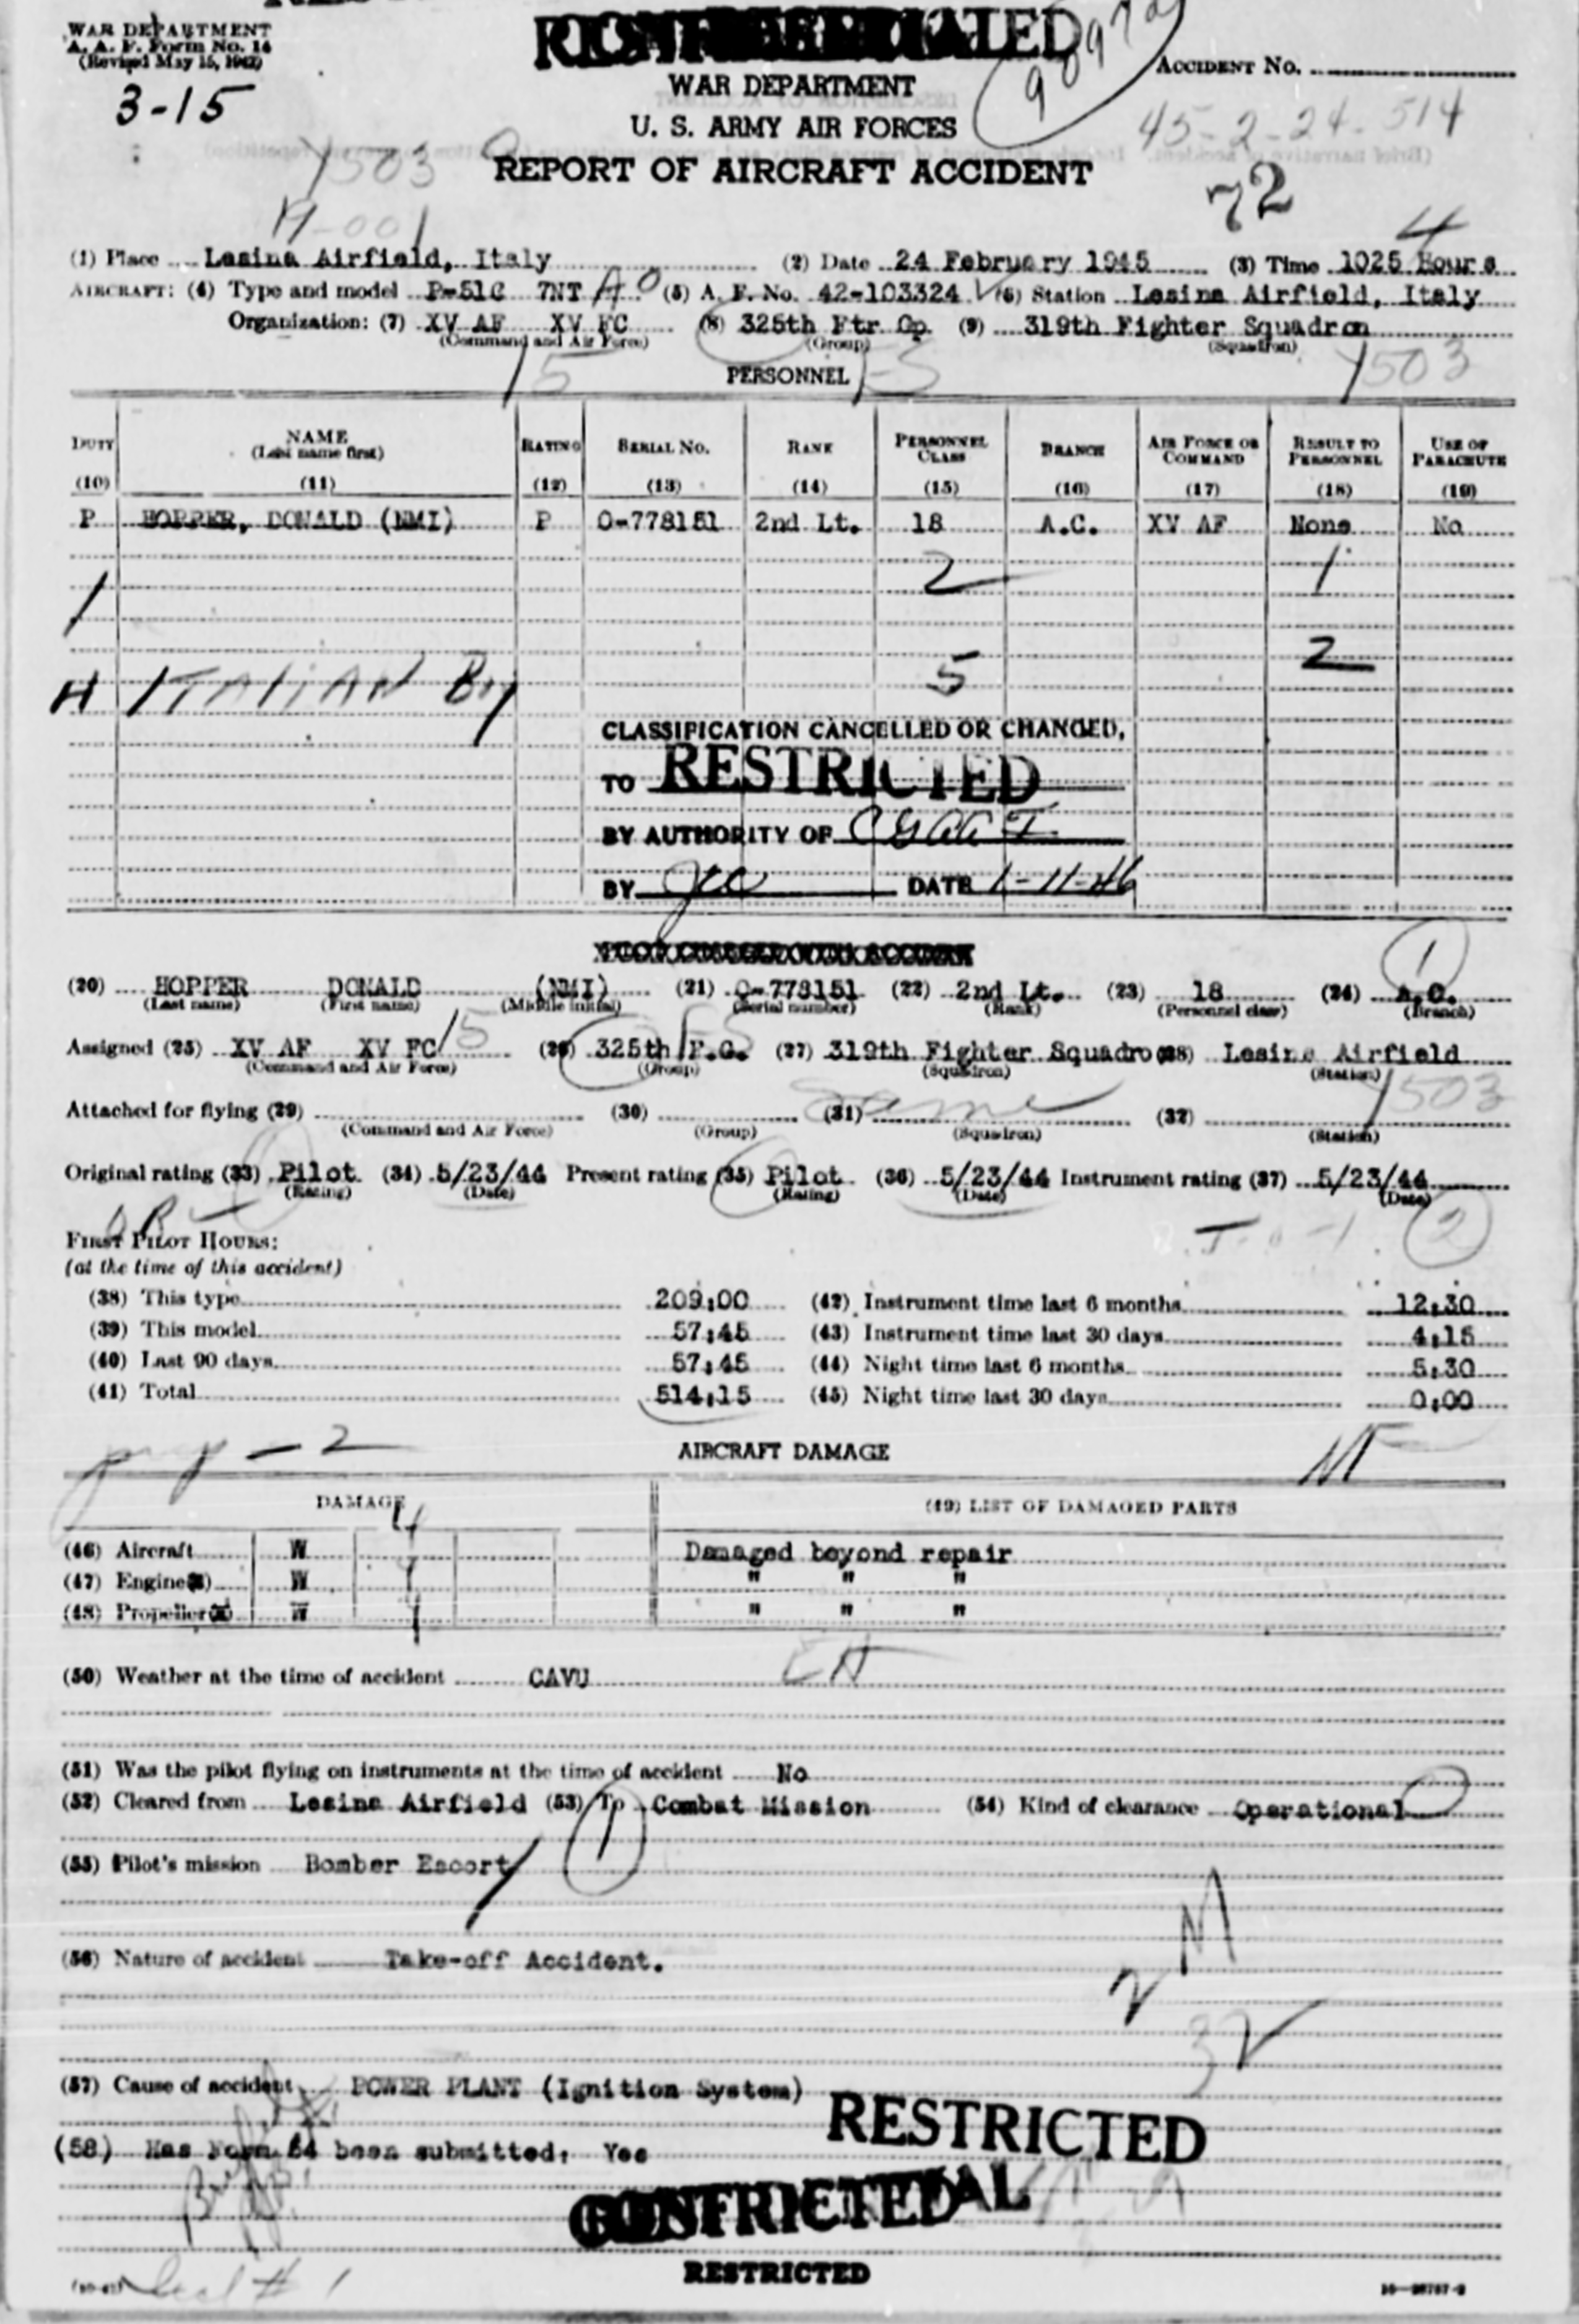 WAR DEPARTMENT
A. A. F. Form No. 14
(Revised May 15, 1942)
3-15
WAR DEPARTMENT
U. S. ARMY AIR FORCES
REPORT OF AIRCRAFT ACCIDENT
ACCIDENT No.
45-2-24-514
72
1503
(1) Place Lesina Airfield, Italy (2) Date 24 February 1945 (3) Time 1025 Hours
4
AIRCRAFT: (4) Type and model P-51C 7NT (5) A. F. No. 42-103324 (6) Station Lesina Airfield, Italy
Organization: (7) XV AF XV FC (8) 325th Ftr Gp. (9) 319th Fighter Squadron
(Command and Air Force) (Group) (Squadron)
15 PERSONNEL 1503
DUTY NAME RATING SERIAL NO. RANK PERSONNEL CLASS BRANCH AIR FORCE OR COMMAND RESULT TO PERSONNEL USE OF PARACHUTE
(Last name first)
(10) (11) (12) (13) (14) (15) (16) (17) (18) (19)
P HOPPER, DONALD (NMI) P O-778151 2nd Lt. 18 A.C. XV AF None No
1 2 1
2
H ITALIAN Boy 5
CLASSIFICATION CANCELLED OR CHANGED,
TO RESTRICTED
BY AUTHORITY OF
BY DATE 1-11-46
(20) HOPPER DONALD (NMI) (21) O-778151 (22) 2nd Lt. (23) 18 (24) A.C.
(Last name) (First name) (Middle initial) (Serial number) (Rank) (Personnel class) (Branch)
1
Assigned (25) XV AF XV FC (26) 325th F.G. (27) 319th Fighter Squadron (28) Lesina Airfield
15
(Command and Air Force) (Group) (Squadron) (Station)
1503
Attached for flying (29) (30) (31) same (32)
(Command and Air Force) (Group) (Squadron) (Station)
Original rating (33) Pilot (34) 5/23/44 Present rating (35) Pilot (36) 5/23/44 Instrument rating (37) 5/23/44
(Rating) (Date) (Rating) (Date) (Date)
2
FIRST PILOT HOURS:
(at the time of this accident)
(38) This type 209:00 (42) Instrument time last 6 months 12:30
(39) This model 57:45 (43) Instrument time last 30 days 4:15
(40) Last 90 days 57:45 (44) Night time last 6 months 5:30
(41) Total 514:15 (45) Night time last 30 days 0:00
AIRCRAFT DAMAGE
DAMAGE (49) LIST OF DAMAGED PARTS
(46) Aircraft W Damaged beyond repair
(47) Engine W " " "
(48) Propeller W " " "
(50) Weather at the time of accident CAVU
(51) Was the pilot flying on instruments at the time of accident No
(52) Cleared from Lesina Airfield (53) To Combat Mission (54) Kind of clearance Operational
(55) Pilot's mission Bomber Escort
(56) Nature of accident Take-off Accident.
(57) Cause of accident POWER PLANT (Ignition System)
RESTRICTED
(58) Has Form 54 been submitted: Yes
RESTRICTED